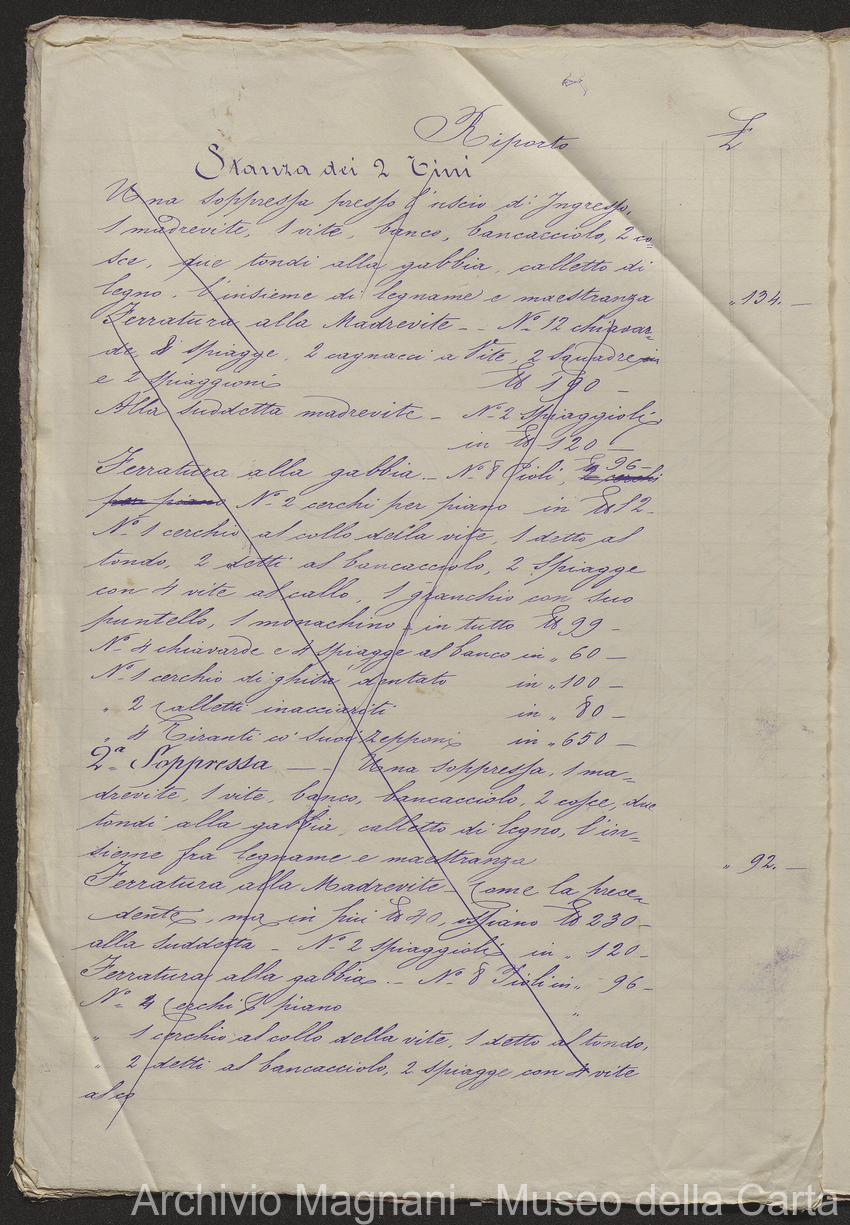 Riporto £
Stanza dei 2 Tini
Una soppressa presso l'uscio d'Ingresso,
1 madrevite, 1 vite, banco, bancacciolo, 2 co=
sce, due tondi alla gabbia, calletto di
legno, l'insieme di legname e maestranza " 134. —
Ferratura alla Madrevite - - N.º 12 chiavar=
de, 8 spiagge, 2 cagnacci a Vite, 2 Squadre in
e 2 spiaggioni ℔ 190 —
Alla suddetta madrevite - N.º 2 Spiaggioli
in ℔ 120 —
Ferratura alla gabbia - N.º 8 Pioli, ℔ 96 — 2 cerchi
per piano N.º 2 cerchi per piano in ℔ 52 -
N.º 1 cerchio al collo della vite, 1 detto al
tondo, 2 detti al bancacciolo, 2 Spiagge
con 4 vite al callo, 1 granchio con suo
puntello, 1 monachino - in tutto ℔ 99 -
N.º 4 chiavarde e 4 spiagge al banco in " 60 —
N.º 1 cerchio di ghisa dentato in " 100 —
" 2 Calletti inacciariti in " 80 —
" 4 Tiranti co' suoi Zepponi in " 650 —
2.ª Soppressa — - Una soppressa, 1 ma=
drevite, 1 vite, banco, bancacciolo, 2 cosce, due
tondi alla gabbia, calletto di legno, l'in=
sieme fra legname e maestranza " 92. —
Ferratura alla Madrevite - Come la prece=
dente, ma in più ℔ 40, ossiano ℔ 230 -
alla suddetta - N.º 2 spiaggioli in " 120 -
Ferratura alla gabbia. - N.º 8 Pioli in " 96 -
N.º 4 Cerchi piano "
" 1 cerchio al collo della vite, 1 detto al tondo,
" 2 detti al bancacciolo, 2 spiagge con 4 vite
al co
Archivio Magnani - Museo della Carta